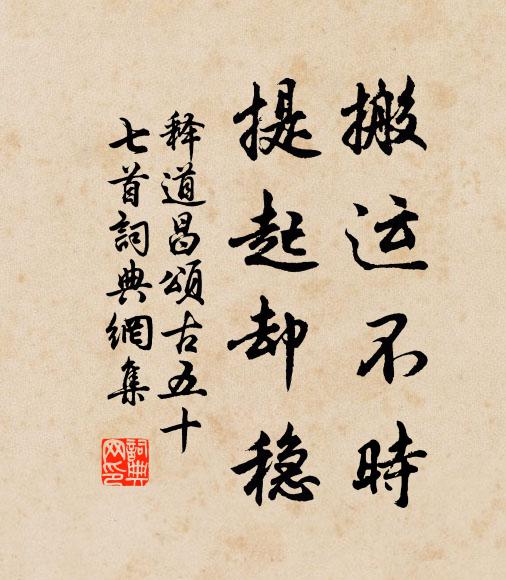 搬运不時
提起却穏
释道昌頌古五十
七首詞典網集
詞典
网印